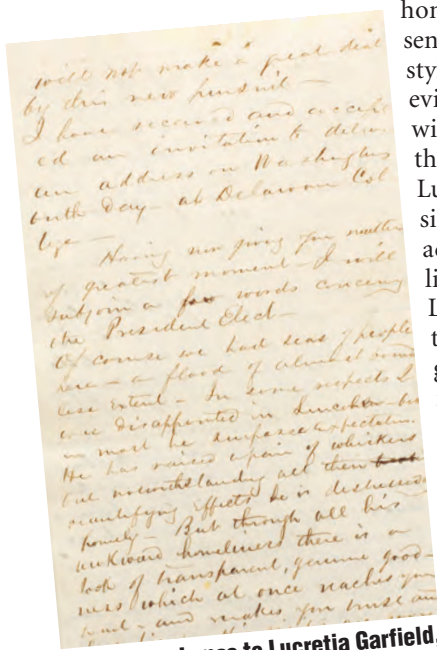 will not make a great deal
by this new pursuit—
I have received and accept
ed an invitation to deliver
an address on Washingtons
birth day— at Delaware Col
lege—
Having now given you matters
of greatest moment— I will
subjoin a few words concerning
the President Elect—
Of course we had seas of people
here— a flood of almost bound
less extent— In some respects I
was disappointed in Lincoln— but
in most he surpassed expectation.
He has raised a pair of whiskers
but notwithstanding all their
beautifying effects he is distressedly
homely— But through all his
awkward homeliness there is a
look of transparent, genuine good-
ness which at once reaches your
heart, and makes you trust and
hom
sen
sty
evi
wi
th
Lu
si
ac
li
L
t
g
to Lucretia Garfield,